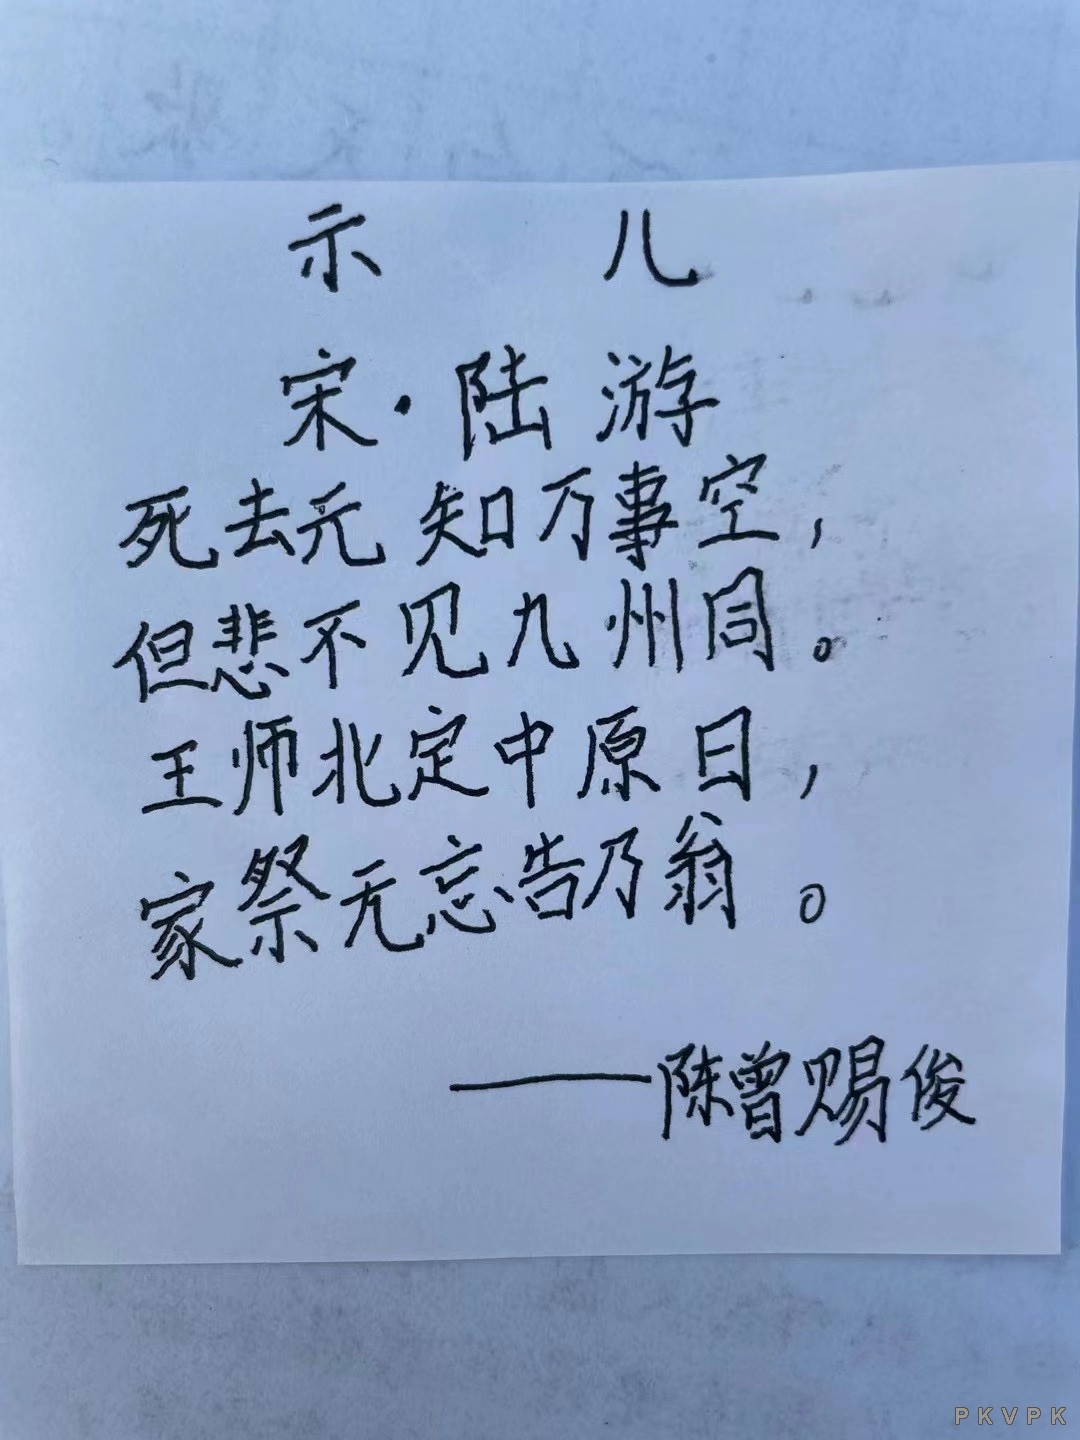 示儿
宋·陆游
死去元知万事空，
但悲不见九州同。
王师北定中原日，
家祭无忘告乃翁。
——陈曾赐俊
PKVPK